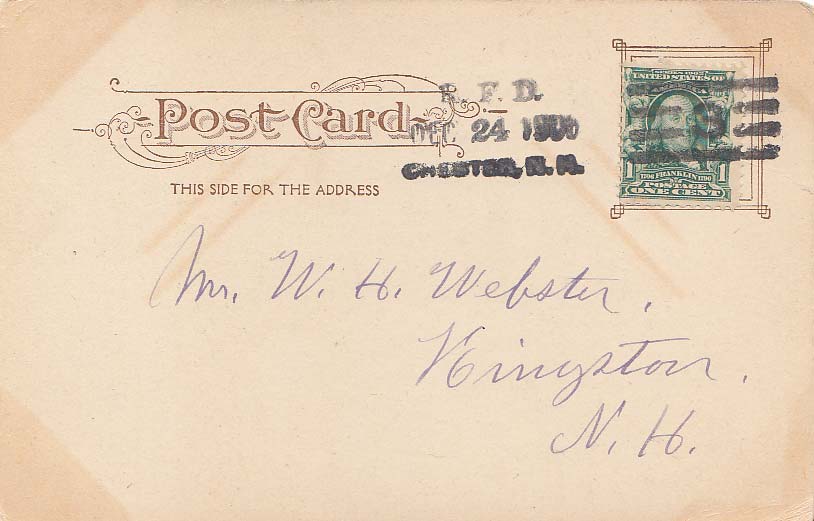 POST CARD
THIS SIDE FOR THE ADDRESS
R. F. D.
DEC 24
CHESTER, N. H.
SERIES 1902
UNITED STATES OF
AMERICA
1706 FRANKLIN 1790
1 POSTAGE 1
ONE CENT
Mr. W. H. Webster,
Kingston,
N. H.